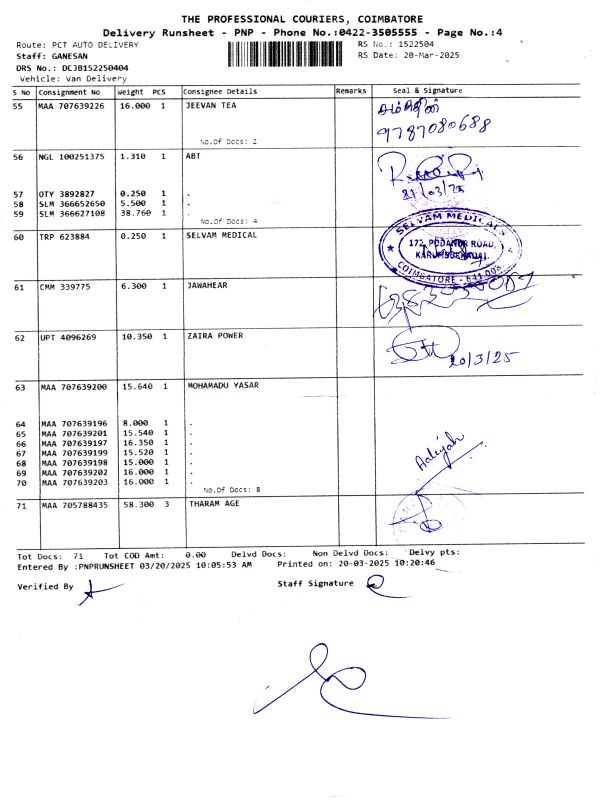 THE PROFESSIONAL COURIERS, COIMBATORE
Delivery Runsheet - PNP - Phone No.:0422-3505555 - Page No.:4
Route: PCT AUTO DELIVERY RS No.: 1522504
Staff: GANESAN RS Date: 20-Mar-2025
DRS No.: DCJB152250404
Vehicle: Van Delivery
S No Consignment No Weight PCS Consignee Details Remarks Seal & Signature
55 MAA 707639226 16.000 1 JEEVAN TEA
9787080688
No.Of Docs: 2
56 NGL 100251375 1.310 1 ABT
57 OTY 3892827 0.250 1 .
58 SLM 366652650 5.500 1 .
59 SLM 366627108 38.760 1 .
No.Of Docs: 4
60 TRP 623884 0.250 1 SELVAM MEDICAL
SELVAM MEDICALS
172, PODANUR ROAD,
COIMBATORE - 641 008
61 CMM 339775 6.300 1 JAWAHEAR
62 UPT 4096269 10.350 1 ZAIRA POWER
20/3/25
63 MAA 707639200 15.640 1 MOHAMADU YASAR
64 MAA 707639196 8.000 1 .
65 MAA 707639201 15.540 1 .
66 MAA 707639197 16.350 1 .
67 MAA 707639199 15.520 1 .
68 MAA 707639198 15.000 1 .
69 MAA 707639202 16.000 1 .
70 MAA 707639203 16.000 1 .
Aaliyah
No.Of Docs: 8
71 MAA 705788435 58.300 3 THARAM AGE
Tot Docs: 71 Tot COD Amt: 0.00 Delvd Docs: Non Delvd Docs: Delvy pts:
Entered By :PNPRUNSHEET 03/20/2025 10:05:53 AM Printed on: 20-03-2025 10:20:46
Verified By Staff Signature